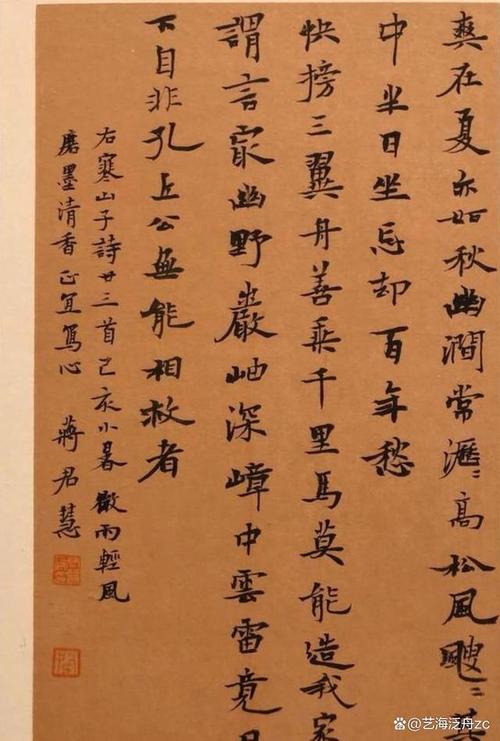 爽在夏亦如秋幽澗常瀝〻高松風颼〻其
中半日坐忘却百年愁
快搒三翼舟善乘千里馬莫能造我家
謂言㝡幽野巖岫深嶂中雲雷竟日
下自非孔丘公無能相救者
右寒山子詩廿三首己亥小暑微雨輕風
磨墨清香正宜寫心 蔣君慧
@艺海泛舟zc